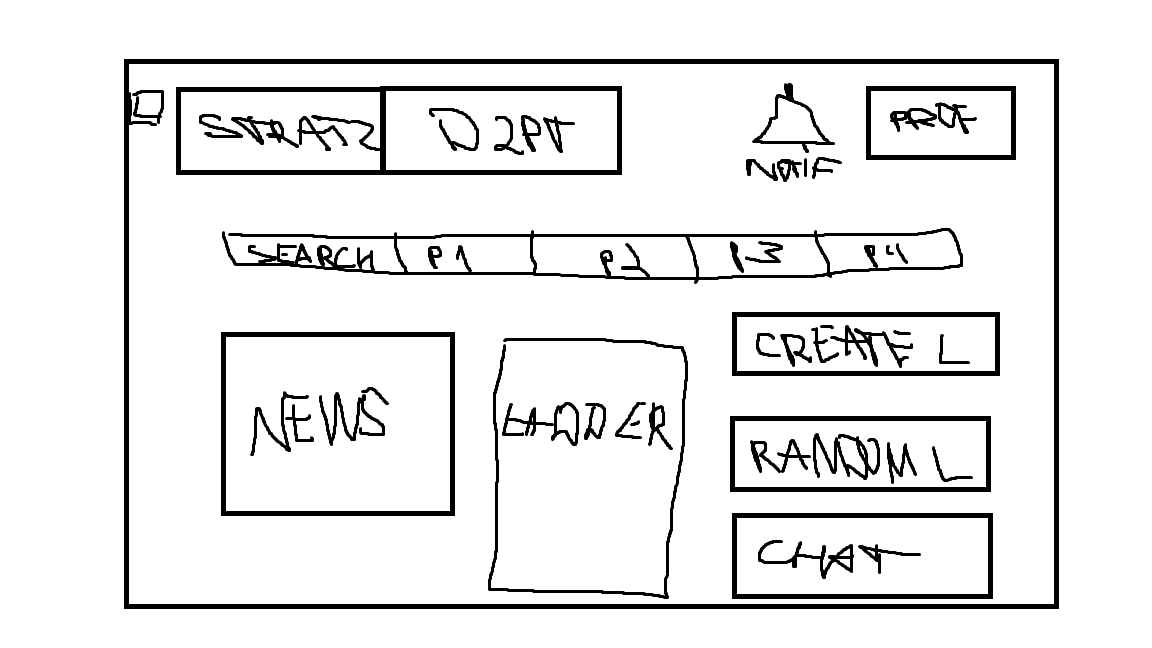 STRATZ D2PT PROF
NOTIF
SEARCH P1 P2 P3 P4
NEWS LADDER CREATE L
RANDOM L
CHAT